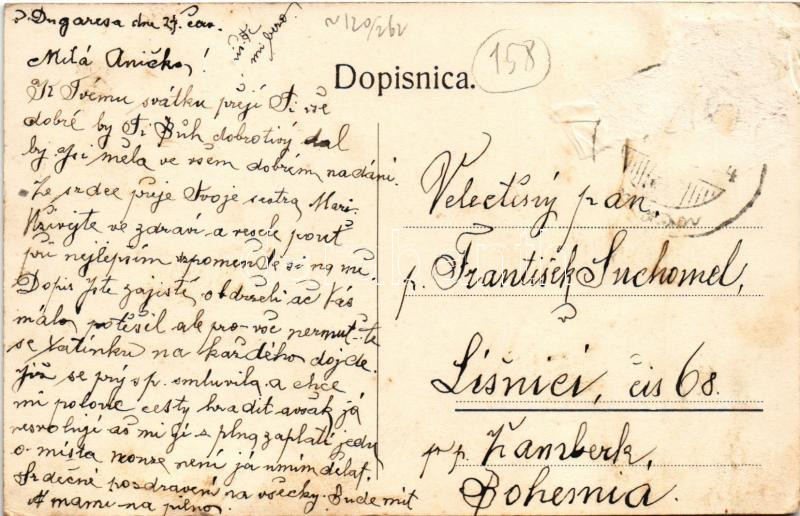 Dugaresa dne 24. čer.
Milá Aničko!
K Tvému svátku přejí Ti vše
dobré by Ti Bůh dobrotivý dal
by jsi měla ve všem dobrém nadání.
Ze srdce přeje Tvoje sestra Mari.
Užívejte ve zdraví a vesele pouť
při nejlepším vzpomeňte si na mě.
Dopis jste zajisté obdrželi ač Vás
málo potěšil ale pro nermuťte
se na každého dojde.
Již se prý s p. smluvila a chce
mi polovic cesty hradit avšak já
až mi ji s plna zaplatí jedu
o místa nouze není já umím dělat.
Srdečné pozdravení na všecky. Bude mít
mamina pilno.
~120/262
158
Dopisnica.
4
Velectěný pan
p. František Suchomel,
v
Lišnici, čís 68.
pp. Žamberk,
Bohemia.